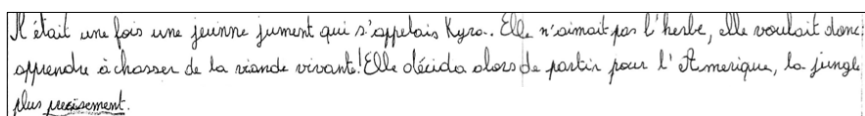 Il était une fois une jeuinne jument qui s'appelais Kyra.. Elle n'aimait pas l'herbe, elle voulait donc
apprendre à chasser de la viande vivante! Elle décida alors de partir pour l'Amerique, la jungle
plus precisement.